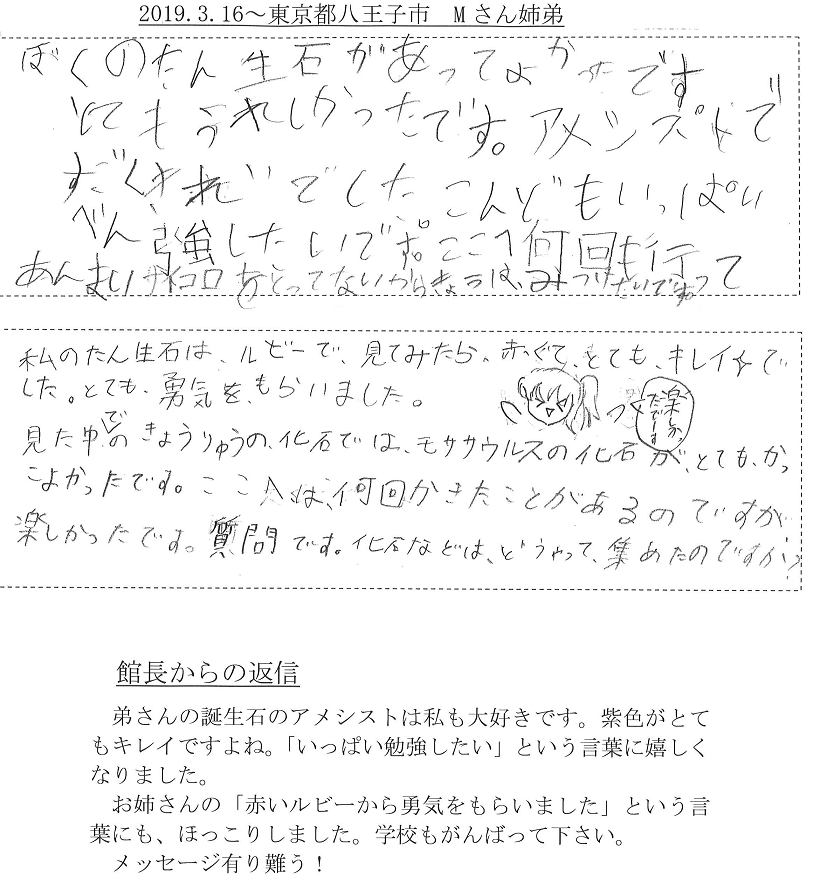 2019.3.16～東京都八王子市　Mさん姉弟
ぼくのたん生石があってよかったです
とてもうれしかったです。アメシストで
すごくきれいでした こんどもいっぱい
べん強したいです。ここへ何回も行って
あんまりサイコロをとってないからきょうは、みつけたいです
私のたん生石は、ルビーで、見てみたら、赤くて、とても、キレイ☆で
した。とても、勇気を、もらいました。
楽しかったです
見た中でのきょうりゅうの、化石では、モササウルスの化石が、とても、かっ
こよかったです。ここへは、何回かきたことがあるのですが
楽しかったです。質問です。化石などは、どうやって、集めたのですか？
館長からの返信
弟さんの誕生石のアメシストは私も大好きです。紫色がとて
もキレイですよね。「いっぱい勉強したい」という言葉に嬉しく
なりました。
お姉さんの「赤いルビーから勇気をもらいました」という言
葉にも、ほっこりしました。学校もがんばって下さい。
メッセージ有り難う！